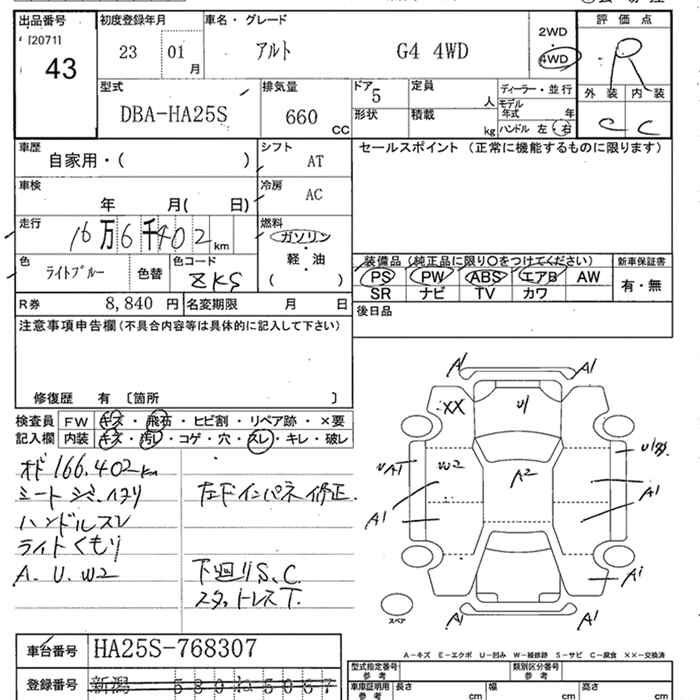 出品番号 初度登録年月 車名・グレード 評価点
[2071]
43
23 01月 アルト G4 4WD
2WD
4WD
R
型式 排気量 ドア 定員 ディーラー・並行 外装 内装
DBA-HA25S 660cc 5 人 モデル年式 年 C C
形状 積載 kg ハンドル 左・右
車歴 シフト セールスポイント (正常に機能するものに限ります)
自家用・( ) AT
車検 冷房
年 月( 日) AC
走行 燃料
16万6千402km ガソリン
軽・油
( )
色 色コード 装備品 (純正品に限り○をつけてください) 新車保証書
ライトブルー 色替 ZKS PS PW ABS エアB AW 有・無
SR ナビ TV カワ
R券 8,840円 名変期限 月 日 後日品
注意事項申告欄(不具合内容等は具体的に記入して下さい)
修復歴 有〔箇所 〕
検査員 FW キズ・飛石・ヒビ割・リペア跡・×要
記入欄 内装 キズ・汚れ・コゲ・穴・スレ・キレ・破レ
オド166.402km
シートシミ.ヘタリ 左Fインパネ修正.
ハンドルスレ
ライトくもり
A.U.W2 下廻りS.C.
スタットレスT.
A1 A1
XX U1
UA1 W2 A2
A1 A1
A1
A1 A1
スペア
A-キズ E-エクボ U-凹み W-補修跡 S-サビ C-腐食 ××-交換済
車台番号 HA25S-768307
型式指定番号 参考 類別区分番号 参考
登録番号 新潟 580 ね 5087
車庫証明用 参考 長さ cm 幅 cm 高さ cm